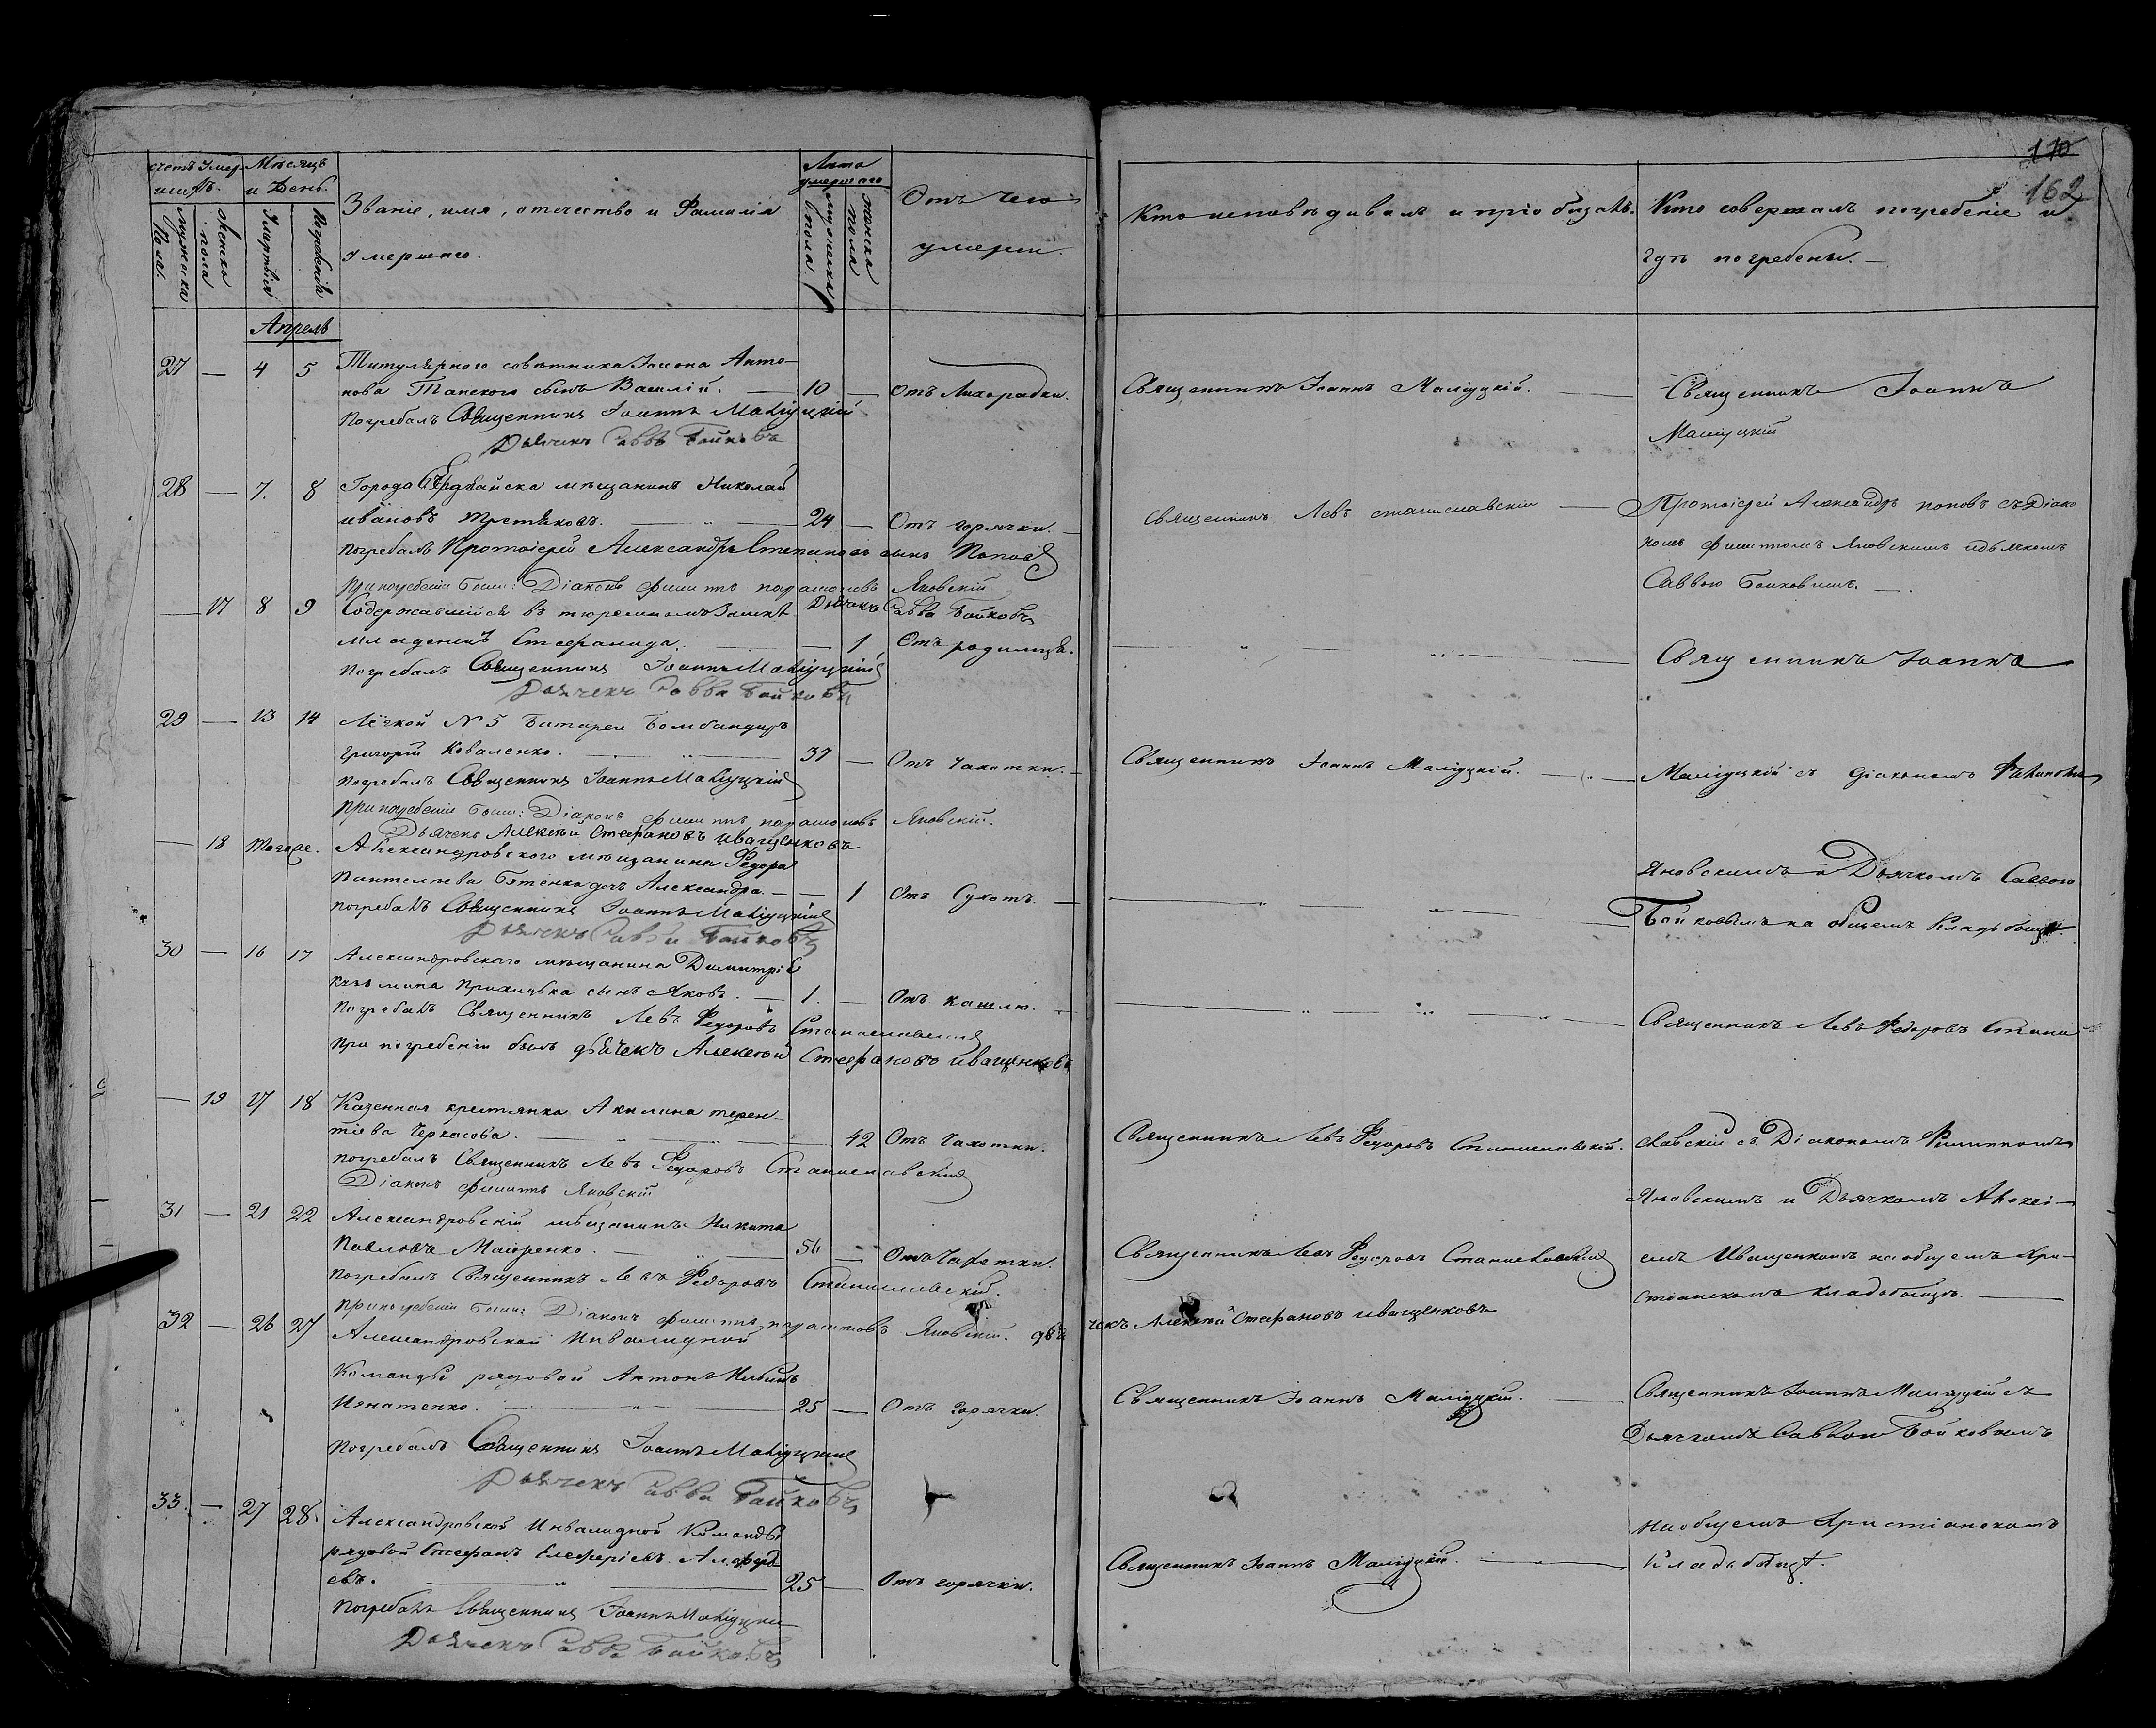 170
162
счетъ умер- Мѣсяцъ
шихъ. и День.
мужеска пола.
женска пола
Смертыи
Погребенія
Званіе, имя, отчество и Фамилія
умершаго.
Лѣта
умершаго
мужеска пола
женска пола
Отъ чего
умерли.
Кто исповѣдывалъ и пріобщалъ.
Кто совершалъ погребеніе и
гдѣ погребены. —
Апрель
27 — 4 5 Титулярного совѣтника Антo-
нова сынъ Василій. — 10 — отъ Лихорадки.
Священникъ Іоаннъ Маліуцкій.
Священникъ Іоаннъ
Маліуцкій
Погребалъ Священникъ Іоаннъ Маліуцкій
Дьячекъ Савва Бойковъ
28 — 7. 8 Города мѣщанинъ Николай
ивановъ Третьяковъ. — 24 — Отъ горячки. —
Священникъ Левъ станиславскій
Протоіерей Александръ поповъ съ Діако
номъ Филиппомъ Яновскимъ и дьячкомъ
Саввою Бойковымъ. —
погребалъ Протоіерей Александръ Степановъ сынъ Поповъ
При погребеніи были: Діаконъ филиппъ парамоновъ Яновскій
Дьячекъ Савва Бойковъ
— 17 8 9 Содержавшійся въ тюремномъ Замкѣ
младенецъ Стефанида. — 1 Отъ родимца.
Священникъ Іоаннъ
погребалъ Священникъ Іоаннъ Маліуцкій
Дьячекъ Савва Бойковъ
29 — 13 14 Легкой № 5 Батареи Бомбандиръ
Григорій Коваленко. — 37 — Отъ Чахотки. —
Священникъ Іоаннъ Маліуцкій.
Маліуцкій съ діакономъ
погребалъ Священникъ Іоаннъ Маліуцкій
При погребеніи были: Діаконъ филиппъ парамоновъ Яновскій.
Дьячекъ Алексѣй Стефановъ иващенковъ
— 18 Тогоже. Александровского мѣщанина Федора
Пантелѣева дочь Александра. — — 1 Отъ Сухотъ. —
Яновскимъ и Дьячкомъ Саввою
Бойковымъ на общемъ Кладбищѣ.
погребалъ Священникъ Іоаннъ Маліуцкій
Дьячекъ Савва Бойковъ
30 — 16 17 Александровского мѣщанина Димитрія
кузьмина сынъ Яковъ. — 1. — Отъ кашлю. —
Священникъ Левъ Федоровъ Стани-
погребалъ Священникъ Левъ Федоровъ Станиславскій
При погребеніи былъ дьячекъ Алексѣй Стефановъ иващенковъ
— 19 17 18 Казенная крестьянка Акилина терен-
тіева Черкасова. — 42 Отъ Чахотки.
Священникъ Левъ Федоровъ Станиславскій.
славскій съ Діакономъ Филиппомъ
Яновскимъ и Дьячкомъ Алексі-
погребалъ Священникъ Левъ Федоровъ Станиславскій
Діаконъ филиппъ Яновскій
31 — 21 22 Александровскій мѣщанинъ Никита
Павловъ Маіоренко. — 56 — отъ Чахотки.
Священникъ Левъ Федоровъ Станиславскій
емъ Иващенкомъ на общемъ Хри-
стіанскомъ кладбищѣ. —
погребалъ Священникъ Левъ Федоровъ Станиславскій.
При погребеніи были: Діаконъ филиппъ парамоновъ Яновскій. дьячекъ Алексѣй Стефановъ иващенковъ
32 — 26 27 Александровской Инвалидной
Команды рядовой Антонъ
Игнатенко. — 25 — Отъ горячки.
Священникъ Іоаннъ Маліуцкій.
Священникъ Іоаннъ Маліуцкій съ
Дьячкомъ Саввою Бойковымъ
погребалъ Священникъ Іоаннъ Маліуцкій
Дьячекъ Савва Бойковъ
33. — 27 28. Александровской Инвалидной Команды
рядовой Стефанъ Елеферіевъ
евъ. — 25 — Отъ горячки.
Священникъ Іоаннъ Маліуцкій.
на общемъ Христіанскомъ
кладбищѣ.
погребалъ Священникъ Іоаннъ Маліуцкій
Дьячекъ Савва Бойковъ